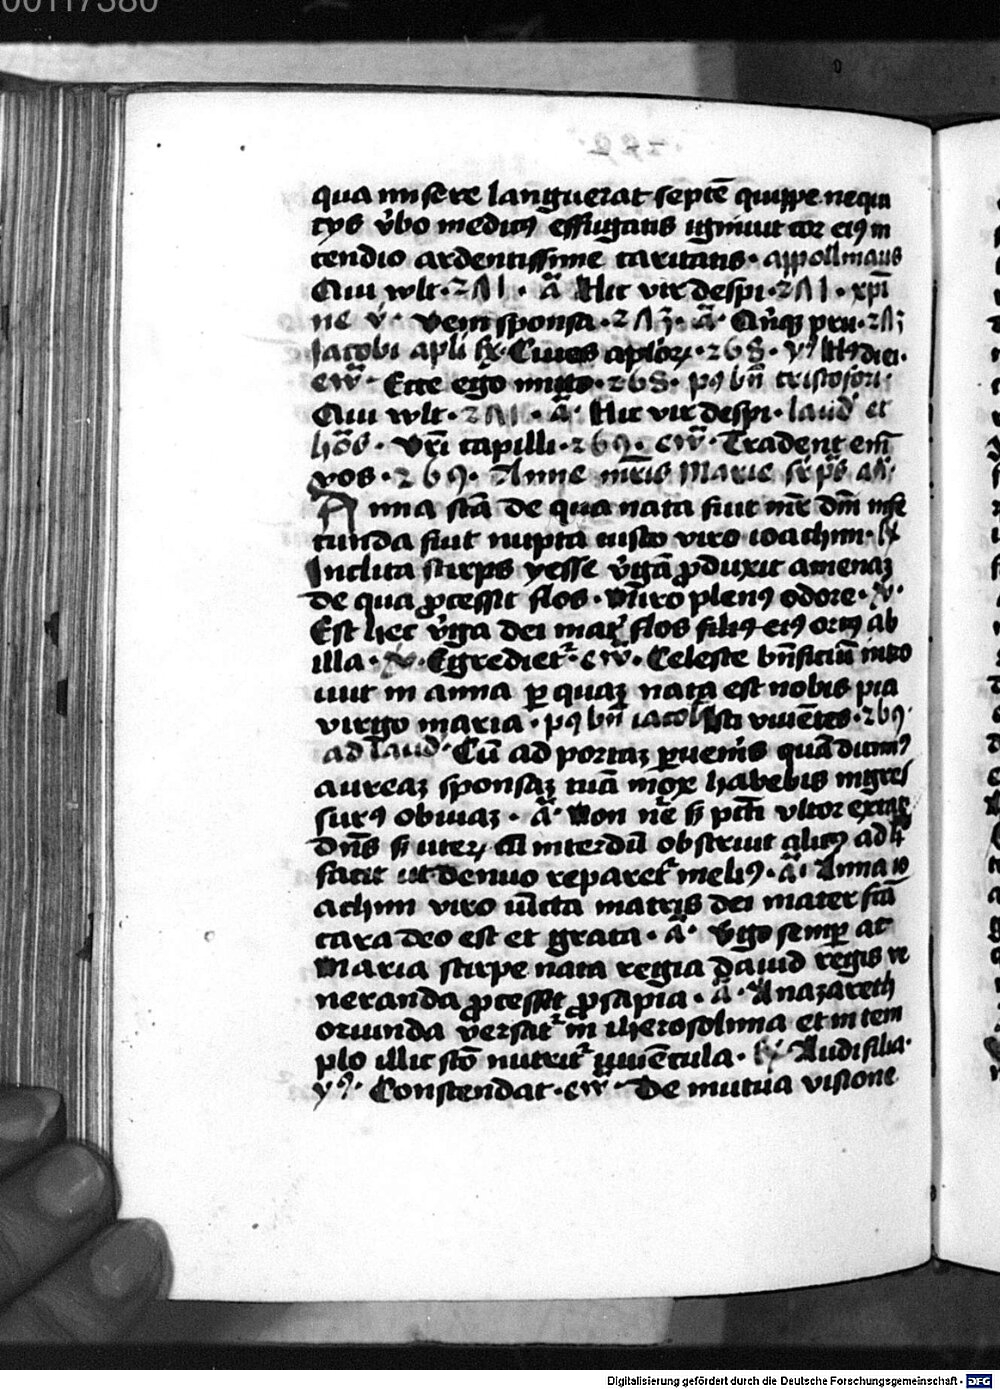 00117380
qua misere languerat septē quippe nequi
cys v̄bo medicꝰ effugatis igniuit cor eiꝰ in
cendio ardentissime caritatis · appollinaris
Qui wlt · 2Λ1 · ā Hic vir despi · 2Λ1 · xp̄i
ne v̄ · Veni sponsa · 2Λ3 · ā · Qn̄qꝫ pru · 2Λ3
Jacobi apl̄i ℟ · Ciues aplōꝝ · 268 · yꝰ Hꝰ diei ·
ew̄ · Ecce ego mitto · 268 · pꝰ bn̄ cristofori ·
Qui wlt · 2Λ1 · ā · Hic vir despi · laud̄ et
hōs · Vr̄i capilli · 269 · ew̄ · Tradent em̄
vos · 269 · Anne mr̄is Marie
Anna stā de qua nata fuit mr̄ dn̄i infe
cunda fuit nupta iusto viro ioachim · ℟
Inclita stirps yesse v̄gā ꝓduxit amenaꝫ
de qua ꝓcessit flos · miro plenꝰ odore · ℣ ·
Est hec v̄ga dei mat̄ flos filiꝰ eiꝰ ortꝰ ab
illa · ℣ · Egrediet᷑ · ew̄ · Celeste bn̄ficiū intro
iuit in anna ꝑ quaꝫ nata est nobis pia
virgo maria · pꝰ bn̄ iacobi Isti viuētes · 269 ·
ad laud̄ · Cū ad portaꝫ ꝑuenis quā dicimꝰ
aureaꝫ sponsaꝫ tuā mox habebis ingres
surꝰ obuiaꝫ · ā · Non nē s̄ pcti vltor extat
dn̄s s̄ uterꝝ cū interdū obstruit alicꝰ ad h᷑
facit ut denuo reparet᷑ meliꝰ · ā · Anna io
achim viro iūcta matris dei mater fcā
cara deo est et grata · ā · v̄go semꝑ at
Maria stirpe nata regia dauid regis ve
neranda ꝓcessit ꝓsapia · ā · A nazareth
oriunda versat᷑ in iherosolima et in tem
plo illic stō nutrit᷑ iuuēcula · ℟ · Audi filia ·
yꝰ · Conscendat · ew̄ · De mutua visione
Digitalisierung gefördert durch die Deutsche Forschungsgemeinschaft - DFG